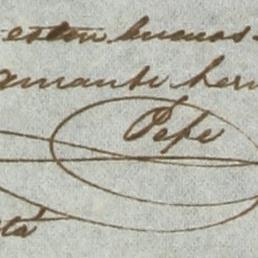 esten buenos
amante her
Pepe